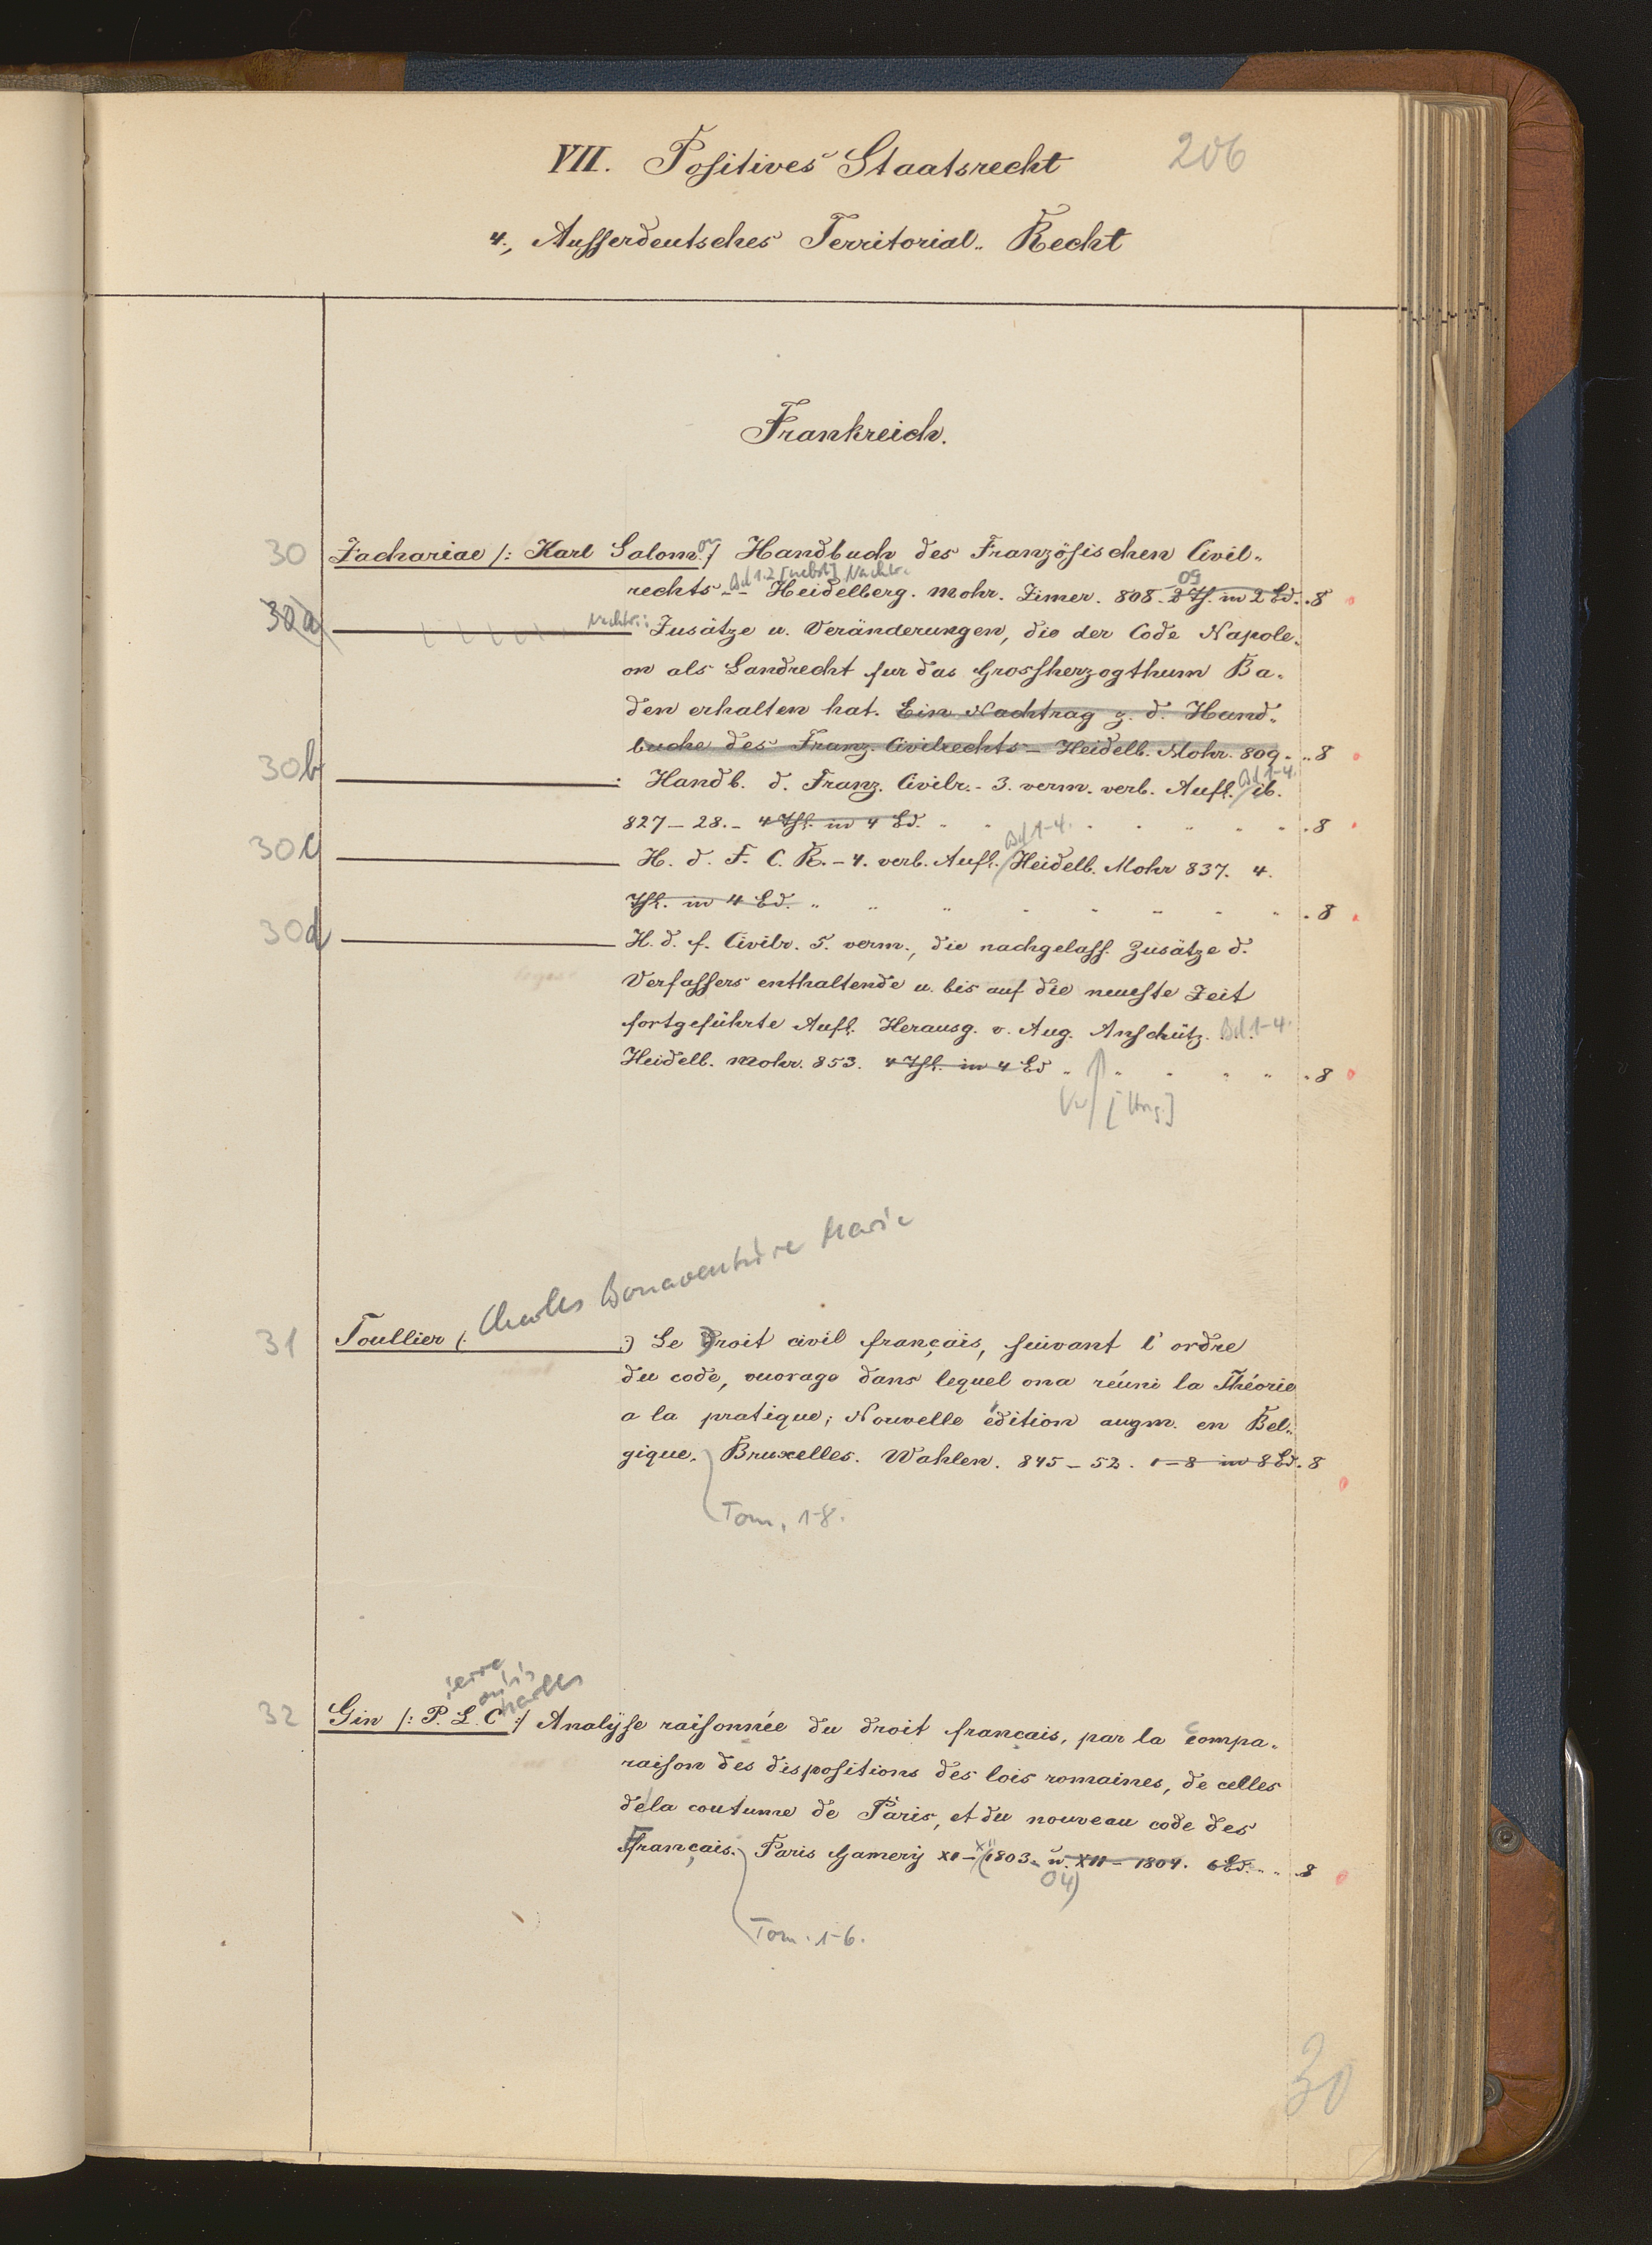 VII. Positives Staatsrecht 206
4., Ausserdeutsches Territorial- Recht
Frankreich.
30 Zachariae /: Karl Salom.on :/ Handbuch des Französischen Civil-
Bd 1.2 [nebst] Nachtr. 09
rechts -- Heidelberg. Mohr. Zimer. 808. 2 Thl. in 2 Bd. . 8
30a Nachtr.: Zusätze u. Veränderungen, die der Code Napole-
on als Landrecht fur das Grossherzogthum Ba-
den erhalten hat. Ein Nachtrag z. d. Hand-
buche des Franz. Civilrechts - Heidelb. Mohr. 809. .. 8
30b : Handb. d. Franz. Civilr. - 3. verm. verb. Aufl. Bd 1-4. ib.
827 - 28. - 4 Thl. in 4 Bd. . 8
30c H. d. F. C. R. - 4. verb. Aufl. Bd 1-4. Heidelb. Mohr 837. 4.
Thl. in 4 Bd. . 8
30d H. d. f. Civilr. 5. verm., die nachgelass. Zusätze d.
Verfassers enthaltende u. bis auf die neueste Zeit
fortgeführte Aufl. Herausg. v. Aug. Anschütz. Bd 1-4.
Heidelb. Mohr. 853. 4 Thl. in 4 Bd . 8
[Hrsg.]
Charles Bonaventure Marie
31 Toullier /: :) Le Droit civil français, suivant l'ordre
du code, ouvrage dans lequel ona réuni la Théorie
a la pratique; Nouvelle édition augm. en Bel-
gique. Bruxelles. Wahlen. 845 - 52. 1-8 in 8 Bd. 8
Tom. 1-8.
ierre ouis harles
32 Gin /: P. L. C :/ Analyse raisonnée du droit francais, par la compa-
raison des dispositions des lois romaines, de celles
dela coutume de Paris, et du nouveau code des
Français. Paris Gamery XI - XII (1803. u. XII - 1804. 6 Bd. .. 8
04)
Tom. 1-6.
30